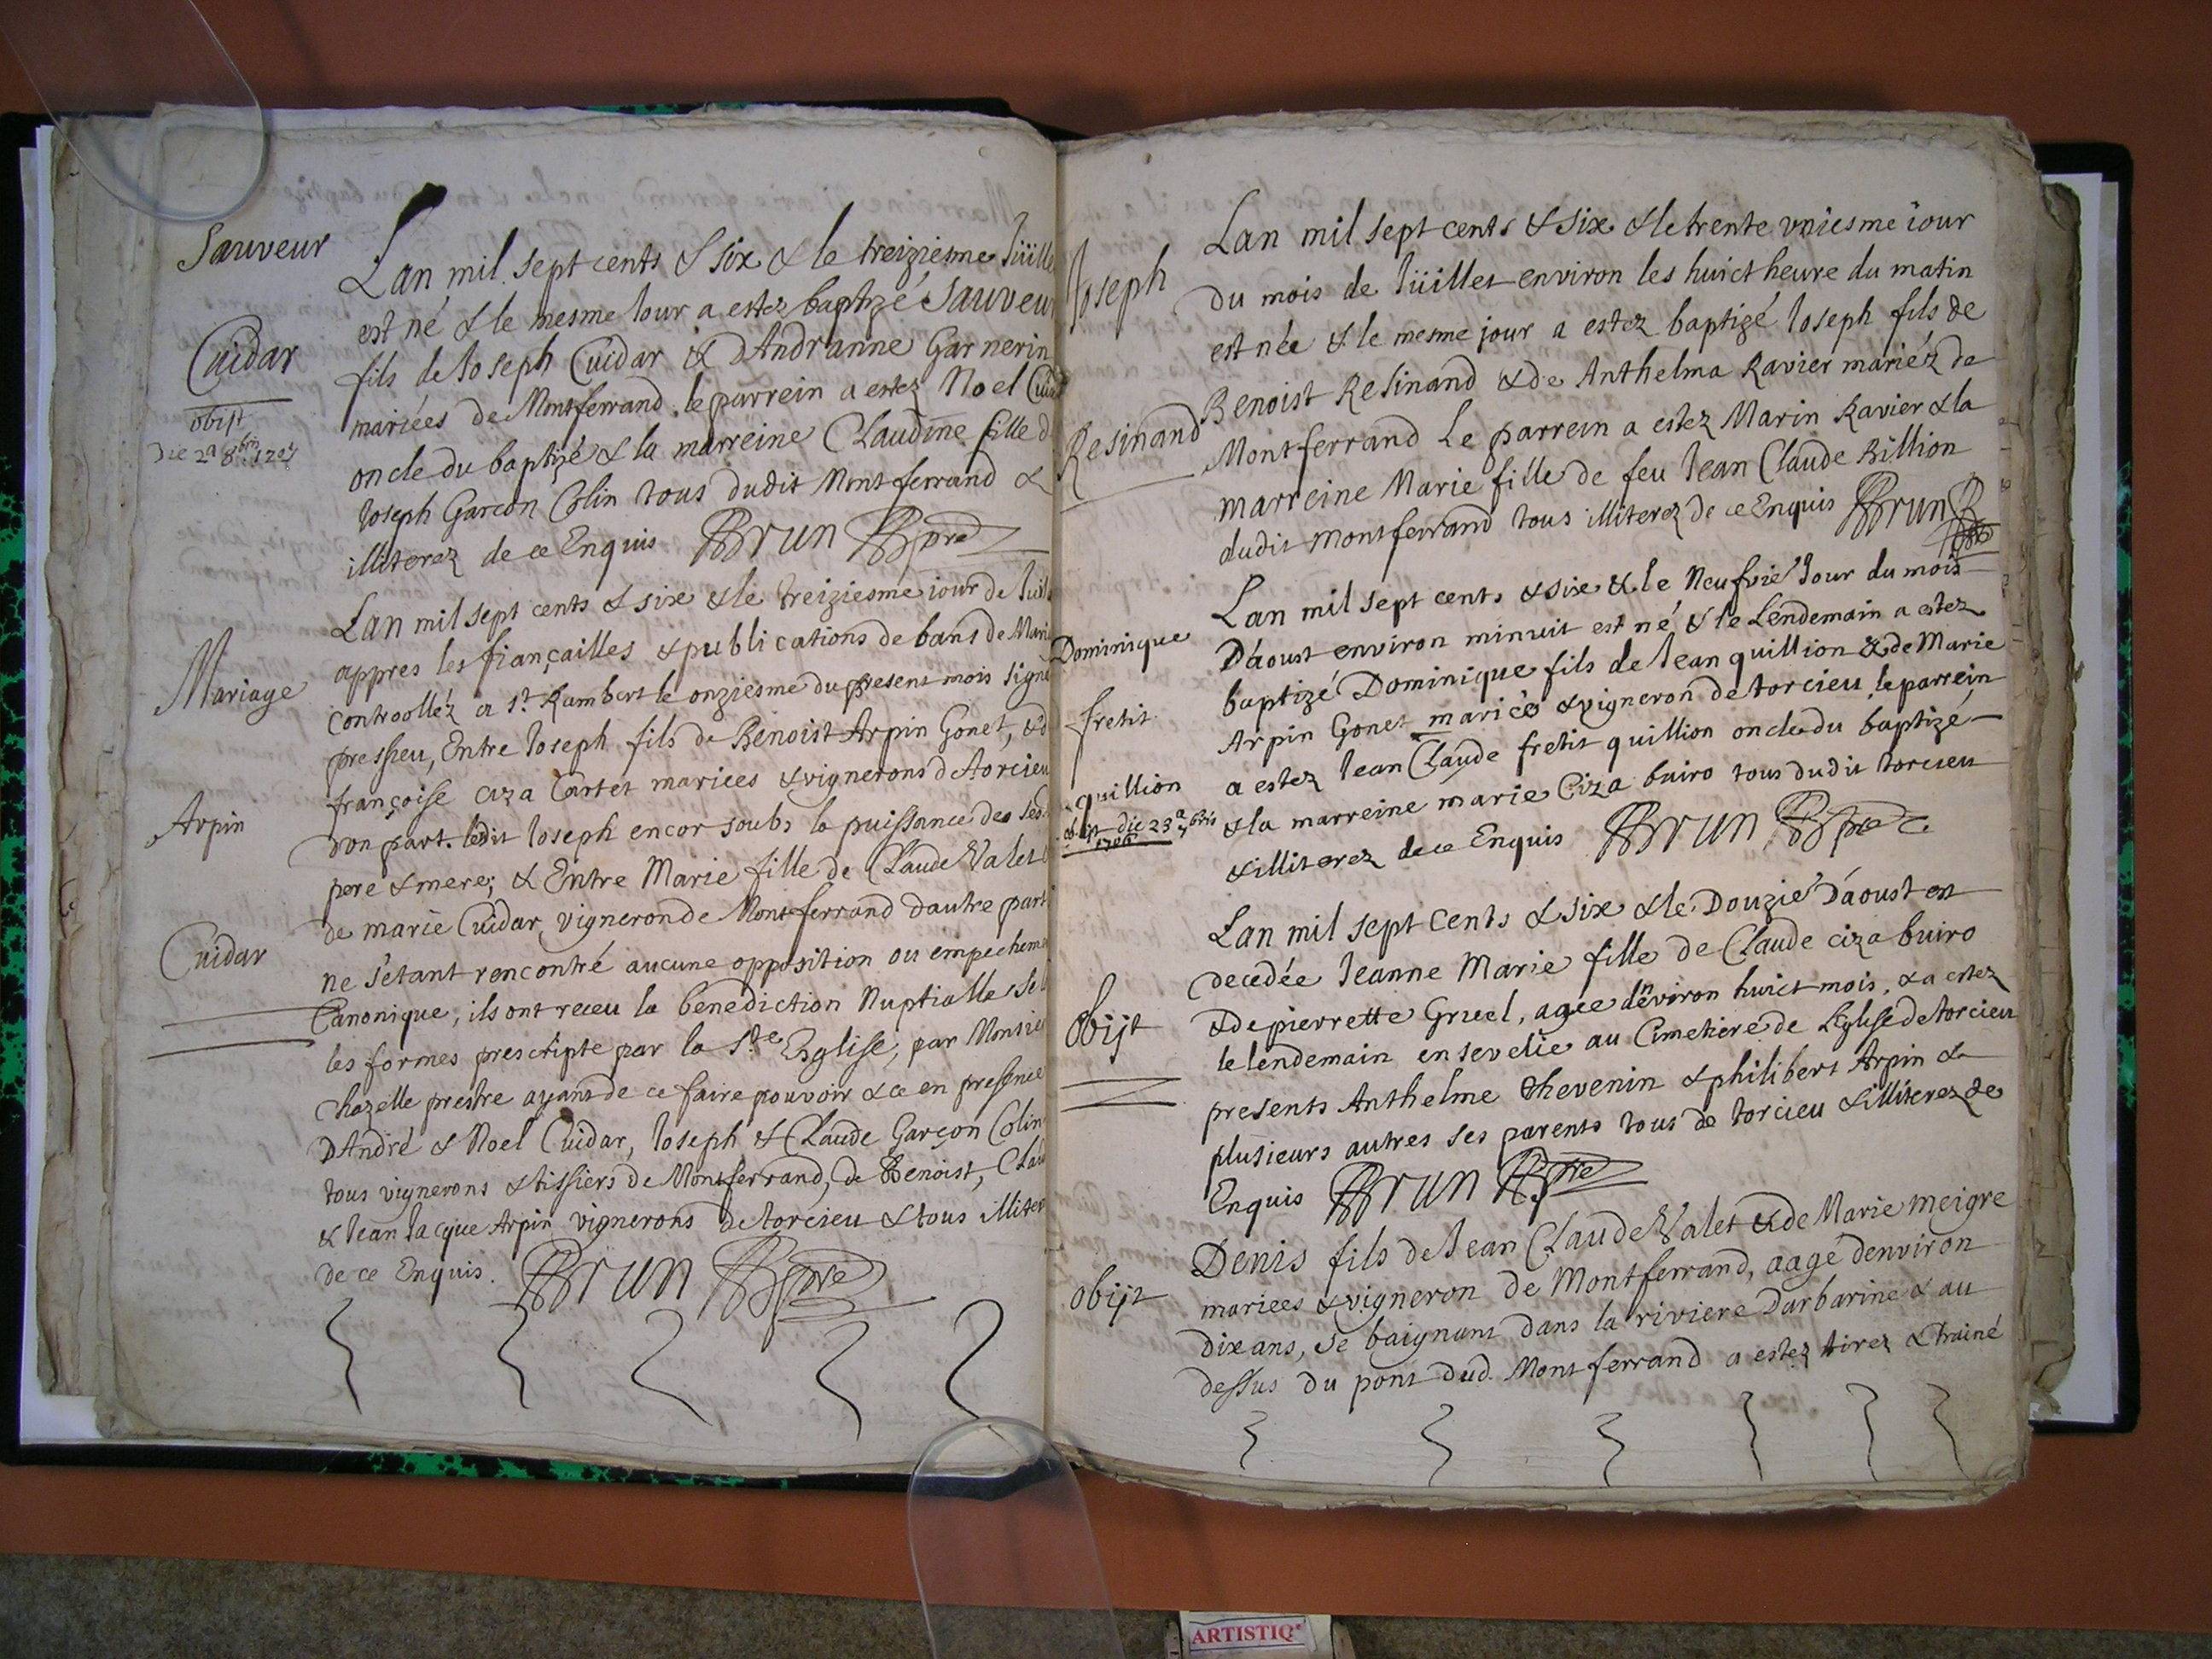 Sauveur
Cuidar
obijt
die 2a 8bris 1707
Lan mil sept cents & six & le treiziesme Jüillet
est né & le mesme Iour a estez baptizé Sauveur
fils de Ioseph Cuidar & DAndranne Garnerin
mariées de Montferrand. le parrein a estez Noel Cuidar
oncle du baptizé & la marreine Claudine fille d
Ioseph Garcon Colin tous dudit Montferrand &
illiterez de ce Enquis BBrun BBpre
Mariage
Arpin
Cuidar
Lan mil sept cents & six & le treiziesme iour de Iuill
appres les fiançailles & publications de bans de Mari
controollez a St. Rambert le onziesme du present mois signé
pressieu, Entre Ioseph fils de Benoist Arpin Gonet, & d
françoise ciza Cartet mariees & vignerons de torcieu
dvn part. ledit Ioseph encor soubs la puissance des ses
pere & mere; & Entre Marie fille de Claude Valet &
de marie Cuidar vigneron de Montferrand dautre part
ne s'étant rencontré aucune opposition ou empecheme
Canonique, ils ont receu la benediction Nuptialle sel
les formes prescripte par la Ste. Esglise, par Monsieu
Chazelle prestre ayant de ce faire pouvoir & ce en presence
DAndré & Noel Cuidar, Ioseph & Claude Garçon Colin
tous vignerons & tissiers de Montferrand, de Benoist, Clau
& Iean Iacque Arpin vignerons de torcieu & tous illiter
de ce Enquis. BBrun BBpre
Ioseph
Resinand
Lan mil sept cents & six & le trente vniesme iour
du mois de Iüillet environ les huict heure du matin
est née & le mesme jour a estez baptizé Ioseph fils de
Benoist Resinand & de Anthelma Ravier mariéz de
Montferrand Le parrein a estez Marin Ravier & la
marreine Marie fille de feu Iean Claude Billion
dudit Montferrand tous illiterez de ce Enquis BBrun
Dominique
fretit
quillion
obijt die 23a 7bris
1706
Lan mil sept cents & six & le Neufvie Iour du mois
Dáoust environ minuit est né & le Lendemain a estez
baptizé Dominique fils de Iean quillion & de Marie
Arpin Gonet mariés & vigneron de torcieu le parrein
a estez Iean Claude fretit quillion oncle du baptizé
& la marreine marie Ciza buiro tous dudit torcieu
& illiterez de ce Enquis BBrun BBpre
Obijt
Lan mil sept Cents & six & le Douzie Dáoust est
decedée Ieanne Marie fille de Claude ciza buiro
& de pierrette Gruel, agée d'environ huict mois, & a estez
le lendemain ensevelie au Cimetiere de L'Eglise de torcieu
presents Anthelme Thevenin & philibert Arpin &
plusieurs autres ses parents tous de torcieu & illiterez de
Enquis BBrun BBpre
obijt
Denis fils de Iean Claude Valet & de Marie Meigre
mariees & vigneron de Montferrand, aagé denviron
dix ans, se baignant dans la riviere Darbarine & au
dessus du pont dud. Montferrand a estez tirez & trainé
ARTISTIQ